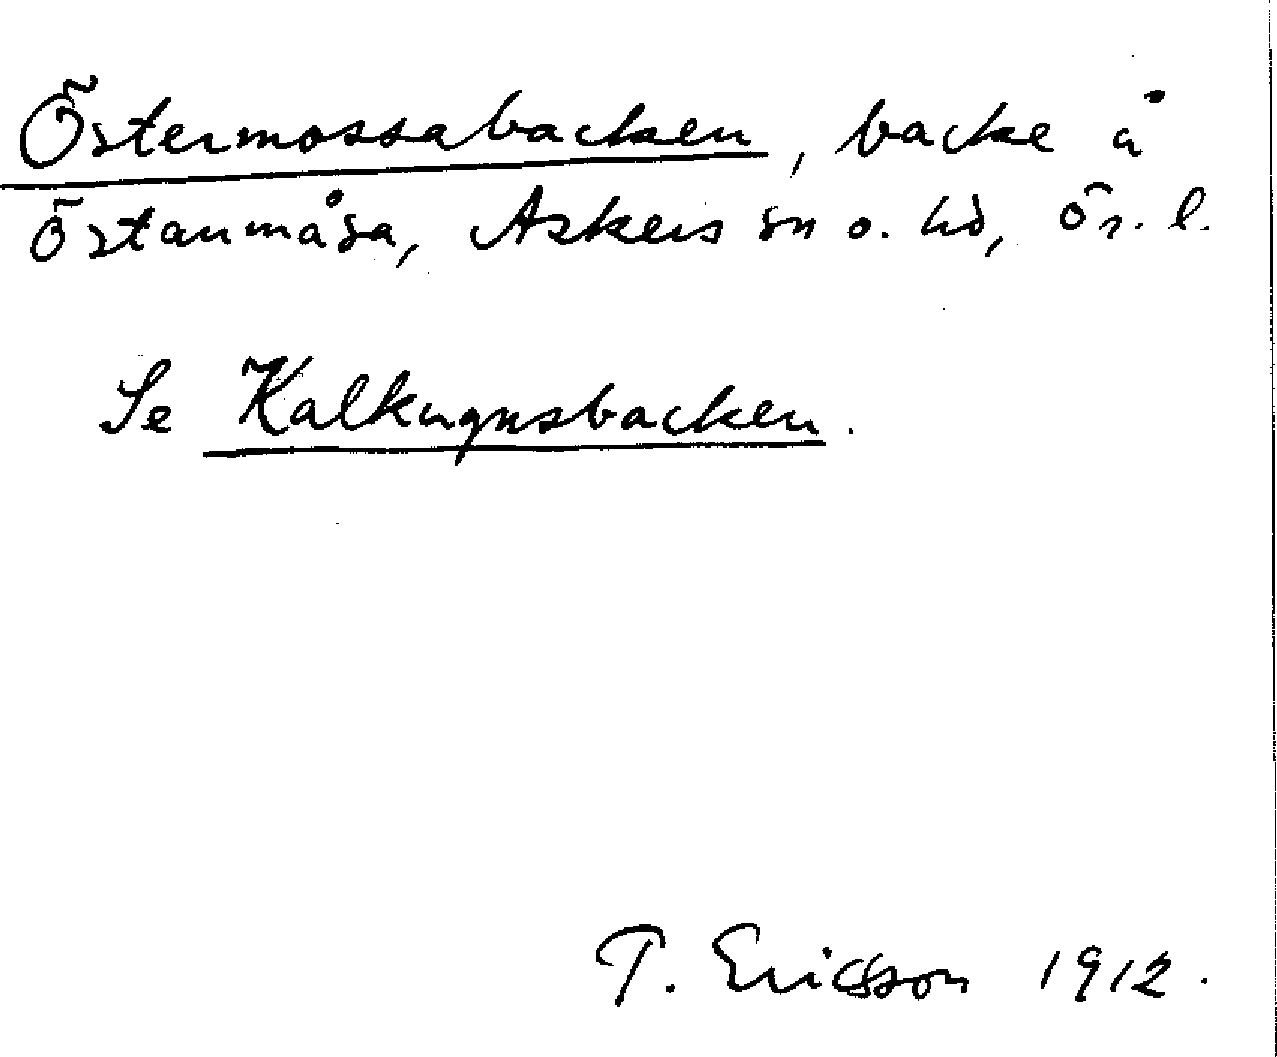 Östermossabacken, backe å
Östanmåsa, Askers sn o. hd, Ör. l.
Se Kalkugnsbacken.
T. Ericsson 1912.